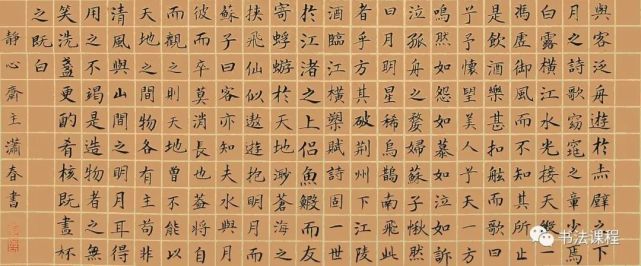 與客泛舟遊於赤壁之下
月之詩歌窈窕之章少焉
白露橫江水光接天縱一
馮虛御風而不知其所止
是飲酒樂甚扣舷而歌曰
兮予懷望美人兮天一方
嗚然如怨如慕如泣如訴
泣孤舟之嫠婦蘇子愀然
曰月明星稀烏鵲南飛此
者乎方其破荆州下江陵
酒臨江橫槊賦詩固一世
於江渚之上侶魚鰕而友
寄蜉蝣於天地渺蒼海之
挾飛仙似遨遊抱明月而
蘇子曰客亦知夫水與月
彼而卒莫消長也蓋將自
而觀之則天地曾不能以
天地之間物各有主苟非
清風與山間之明月耳得
用之不竭是造物者之無
笑洗盞更酌肴核既盡杯
之既白
靜心齋主瀟春書
书法课程